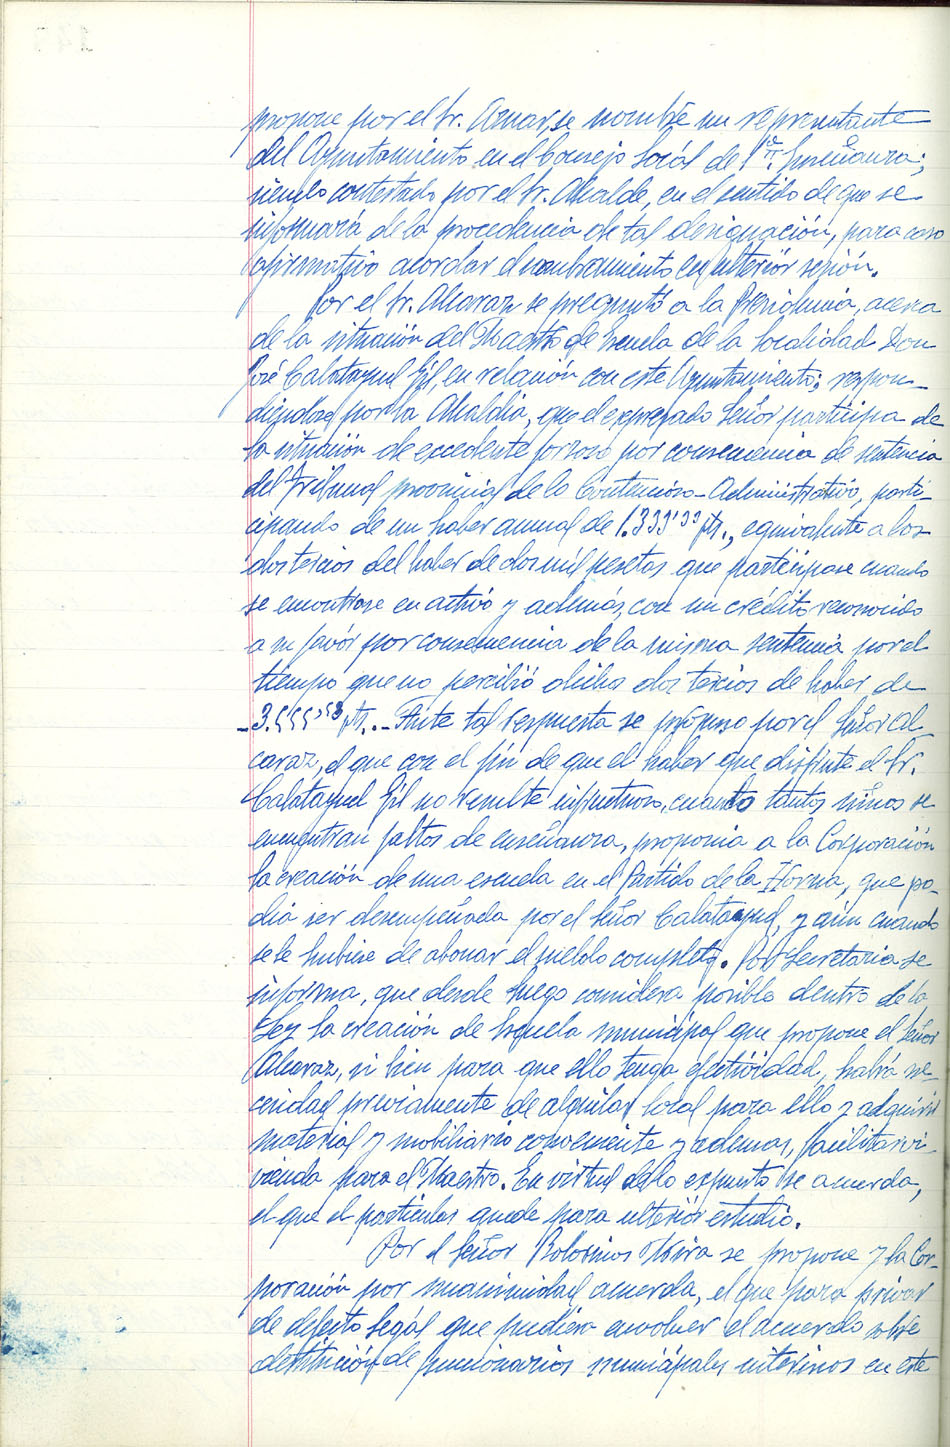 propone por el Sr. Aznar, se nombre un representante
del Ayuntamiento en el Consejo local de 1ª. Enseñanza;
siendo contestado por el Sr. Alcalde, en el sentido de que se
informará de la procedencia de tal designación, para caso
afirmativo acordar el nombramiento en ulterior sesión.
Por el Sr. Alcaraz se preguntó a la Presidencia, acerca
de la situación del Maestro de Escuela de la localidad Don
José Calatayud Gil, en relación con este Ayuntamiento; respon-
diendose por la Alcaldia, que el expresado Señor participa de
la situación de excedente forzoso por consecuencia de sentencia
del Tribunal provincial de lo Contencioso-Administrativo, parti-
cipando de un haber anual de 1.333'33 pts., equivalente a los
dos tercios del haber de dos mil pesetas que participase cuando
se encontrase en activo y además, con un crédito reconocido
a su favor por consecuencia de la misma sentencia por el
tiempo que no percibió dichos dos tercios de haber de
-3.555'53 pts..- Ante tal respuesta se propuso por el Señor Al-
caraz, el que con el fin de que el haber que disfrute el Sr.
Calatayud Gil no resulte infructuoso, cuanto tantos niños se
encuentran faltos de enseñanza, proponia a la Corporación
la creación de una escuela en el Partido de la Horna, que po-
dia ser desempeñada por el Señor Calatayud, y aún cuando
se le hubiese de abonar el sueldo completo. Por Secretaria se
informa, que desde luego considera posible dentro de la
Ley la creación de Escuela municipal que propone el Señor
Alcaraz, si bien para que ello tenga efectividad, habrá ne-
cesidad previamente de alquilar local para ello y adquirir
material y mobiliario conveniente y ademas, facilitar vi-
vienda para el Maestro. En virtud de lo expuesto se acuerda,
el que el particular quede para ulterior estudio.
Por el Señor Bolosinos Mira se propone y la Cor-
poración por unanimidad acuerda, el que para privar
de defecto legal que pudiera envolver el acuerdo sobre
destitución de funcionarios municipales interinos en este